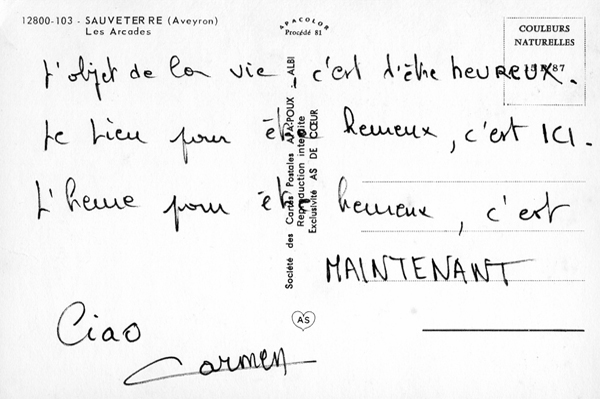 12800-103 - SAUVETERRE (Aveyron)
Les Arcades
APACOLOR
Procédé 81
COULEURS
NATURELLES
87
L'objet de la vie, c'est d'être heureux.
Le Lieu pour être heureux, c'est ICI.
L'heure pour être heureux, c'est
MAINTENANT
Ciao
Carmen
Société des Cartes Postales APA-POUX - ALBI
Reproduction interdite
Exclusivité AS DE CŒUR
AS